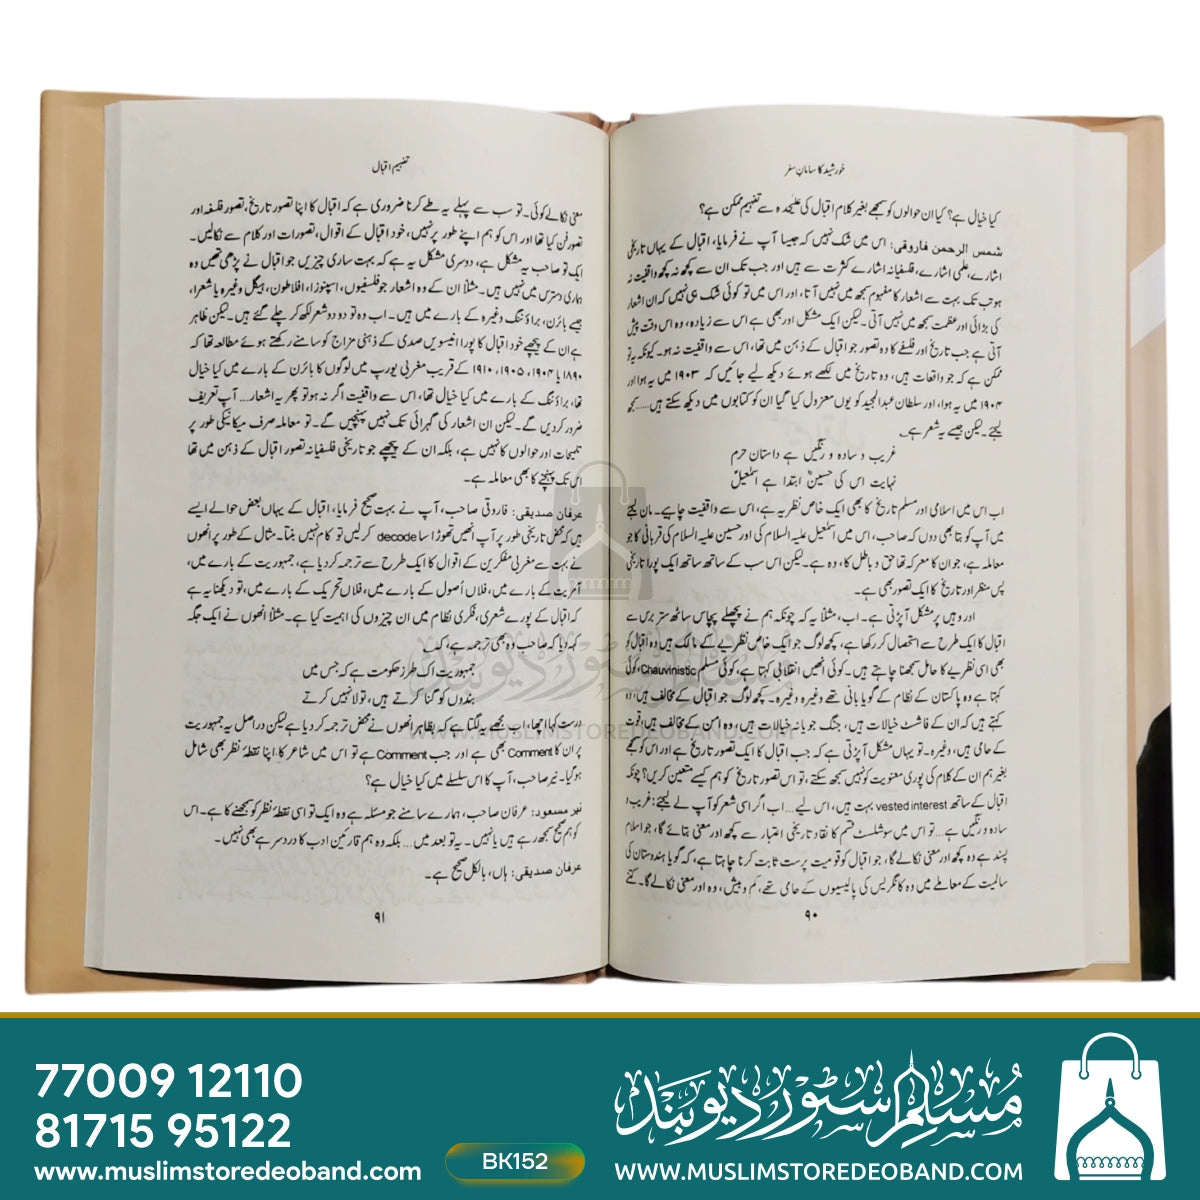 خورشید کا سامان سفر
کیا خیال ہے؟ کیا ان حوالوں کو سمجھے بغیر کلام اقبال کی علیحدہ سے تفہیم ممکن ہے؟
شمس الرحمن فاروقی: اس میں شک نہیں کہ جیسا آپ نے فرمایا، اقبال کے یہاں تاریخی
اشارے، علمی اشارے، فلسفیانہ اشارے کثرت سے ہیں اور جب تک ان سے کچھ نہ کچھ واقفیت نہ
ہو تب تک بہت سے اشعار کا مفہوم سمجھ میں نہیں آتا، اور اس میں تو کوئی شک ہی نہیں کہ ان اشعار
کی بڑائی اور عظمت سمجھ میں نہیں آتی۔ لیکن ایک مشکل اور بھی ہے اس سے زیادہ، وہ اس وقت پیش
آتی ہے جب تاریخ اور فلسفے کا وہ تصور جو اقبال کے ذہن میں تھا، اس سے واقفیت نہ ہو۔ کیونکہ یہ تو
ممکن ہے کہ جو واقعات ہیں، وہ تاریخ میں لکھے ہوئے دیکھ لیے جائیں کہ ۱۹۰۳ میں یہ ہوا اور
۱۹۰۴ میں یہ ہوا، اور سلطان عبدالحمید کو یوں معزول کیا گیا ان کو کتابوں میں دیکھ سکتے ہیں.... سمجھ
لیجئے۔ لیکن جیسے یہ شعر ہے۔
غریب و سادہ و رنگیں ہے داستان حرم
نہایت اس کی حسینؓ ابتدا ہے اسمٰعیلؑ
اب اس میں اسلامی اور مسلم تاریخ کا بھی ایک خاص نظریہ ہے، اس سے واقفیت چاہیے۔ مان لیجئے
میں آپ کو بتا بھی دوں کہ صاحب، اس میں اسمٰعیل علیہ السلام کی اور حسین علیہ السلام کی قربانی کا جو
معاملہ ہے، جو ان کا معرکہ تھا حق و باطل کا، وہ ہے۔ لیکن اس سب کے ساتھ ساتھ ایک پورا تاریخی
پس منظر اور تاریخ کا ایک تصور بھی ہے۔
اور وہیں پر مشکل آپڑتی ہے۔ اب، مثلاً یہ کہ چونکہ ہم نے پچھلے پچاس ساٹھ ستر برس سے
اقبال کا ایک طرح سے استحصال کر رکھا ہے، کچھ لوگ جو ایک خاص نظریے کے مالک ہیں وہ اقبال کو
بھی اسی نظریے کا حامل سمجھنا چاہتے ہیں۔ کوئی انھیں انقلابی کہتا ہے، کوئی مسلم Chauvinistic، کوئی
کہتا ہے وہ پاکستان کے نظام کے گویا بانی تھے وغیرہ وغیرہ۔ کچھ لوگ جو اقبال کے مخالف ہیں، وہ
کہتے ہیں کہ ان کے فاشسٹ خیالات ہیں، جنگ جویانہ خیالات ہیں، وہ امن کے مخالف ہیں، قوت
کے حامی ہیں، وغیرہ۔ تو یہاں مشکل آپڑتی ہے کہ جب اقبال کا ایک تصور تاریخ ہے اور اس کو سمجھے
بغیر ہم ان کے کلام کی پوری معنویت کو نہیں سمجھ سکتے، تو اس تصور تاریخ کو ہم کیسے متعین کریں؟ چونکہ
اقبال کے ساتھ vested interest بہت ہیں، اس لیے ... اب اگر اسی شعر کو آپ لے لیجئے: غریب و
سادہ و رنگیں ہے... تو اس میں سوشلسٹ قسم کا نقاد تاریخی اعتبار سے کچھ اور معنی بتائے گا، جو اسلام
پسند ہے وہ کچھ اور معنی نکالے گا، جو اقبال کو قومیت پرست ثابت کرنا چاہتا ہے، کہ گویا ہندوستان کی
سالمیت کے معاملے میں وہ کانگریس کی پالیسیوں کے حامی تھے، کم و بیش، وہ اور معنی نکالے گا۔ کتنے
۹۰
تفہیم اقبال
معنی نکالے کوئی۔ تو سب سے پہلے یہ طے کرنا ضروری ہے کہ اقبال کا اپنا تصور تاریخ، تصور فلسفہ اور
تصور فن کیا تھا اور اس کو ہم اپنے طور پر نہیں، خود اقبال کے اقوال، تصورات اور کلام سے نکالیں۔
ایک تو صاحب یہ مشکل ہے، دوسری مشکل یہ ہے کہ بہت ساری چیزیں جو اقبال نے پڑھی تھیں وہ
ہماری دسترس میں نہیں ہیں۔ مثلاً ان کے وہ اشعار جو فلسفیوں، اسپنوزا، افلاطون، ہیگل وغیرہ یا شعرا،
جیسے بائرن، براؤننگ وغیرہ کے بارے میں ہیں۔ اب وہ تو دو دو شعر لکھ کر چلے گئے ہیں۔ لیکن ظاہر
ہے ان کے پیچھے خود اقبال کا پورا انیسویں صدی کے ذہنی مزاج کو سامنے رکھتے ہوئے مطالعہ تھا کہ
۱۸۹۰ یا ۱۹۰۴، ۱۹۰۵، ۱۹۱۰ کے قریب مغربی یورپ میں لوگوں کا بائرن کے بارے میں کیا خیال
تھا، براؤننگ کے بارے میں کیا خیال تھا، اس سے واقفیت اگر نہ ہو تو پھر یہ اشعار... آپ تعریف
ضرور کردیں گے۔ لیکن ان اشعار کی گہرائی تک نہیں پہنچیں گے۔ تو معاملہ صرف میکانیکی طور پر
تلمیحات اور حوالوں کا نہیں ہے، بلکہ ان کے پیچھے جو تاریخی فلسفیانہ تصور اقبال کے ذہن میں تھا
اس تک پہنچنے کا بھی معاملہ ہے۔
عرفان صدیقی: فاروقی صاحب، آپ نے بہت صحیح فرمایا، اقبال کے یہاں بعض حوالے ایسے
ہیں کہ محض تاریخی طور پر آپ انھیں تھوڑا سا decode کرلیں تو کام نہیں بنتا۔ مثال کے طور پر انھوں
نے بہت سے مغربی مفکرین کے اقوال کا ایک طرح سے ترجمہ کردیا ہے، جمہوریت کے بارے میں،
آمریت کے بارے میں، فلاں اصول کے بارے میں، فلاں تحریک کے بارے میں، تو دیکھنا یہ ہے
کہ اقبال کے پورے شعری، فکری نظام میں ان چیزوں کی اہمیت کیا ہے۔ مثلاً انھوں نے ایک جگہ
کہہ دیا کہ صاحب وہ بھی ترجمہ ہے، کہ:
جمہوریت اک طرز حکومت ہے کہ جس میں
بندوں کو گنا کرتے ہیں، تولا نہیں کرتے
درست کہا! اچھا، اب مجھے یہ لگتا ہے کہ بظاہر انھوں نے محض ترجمہ کردیا ہے لیکن دراصل یہ جمہوریت
پر ان کا Comment بھی ہے اور جب Comment ہے تو اس میں شاعر کا اپنا نقطۂ نظر بھی شامل
ہوگیا۔ نیر صاحب، آپ کا اس سلسلے میں کیا خیال ہے؟
نیر مسعود: عرفان صاحب، ہمارے سامنے جو مسئلہ ہے وہ ایک تو اسی نقطۂ نظر کو سمجھنے کا ہے۔ اس
کو ہم صحیح سمجھ رہے ہیں یا نہیں۔ یہ تو بعد میں... بلکہ وہ ہم قارئین ادب کا درد سر ہے بھی نہیں۔
عرفان صدیقی: ہاں، بالکل صحیح ہے۔
۹۱
مسلم سٹور دیوبند
WWW.MUSLIMSTOREDEOBAND.COM
77009 12110
81715 95122
www.muslimstoredeoband.com
BK152
مسلم سٹور دیوبند
WWW.MUSLIMSTOREDEOBAND.COM